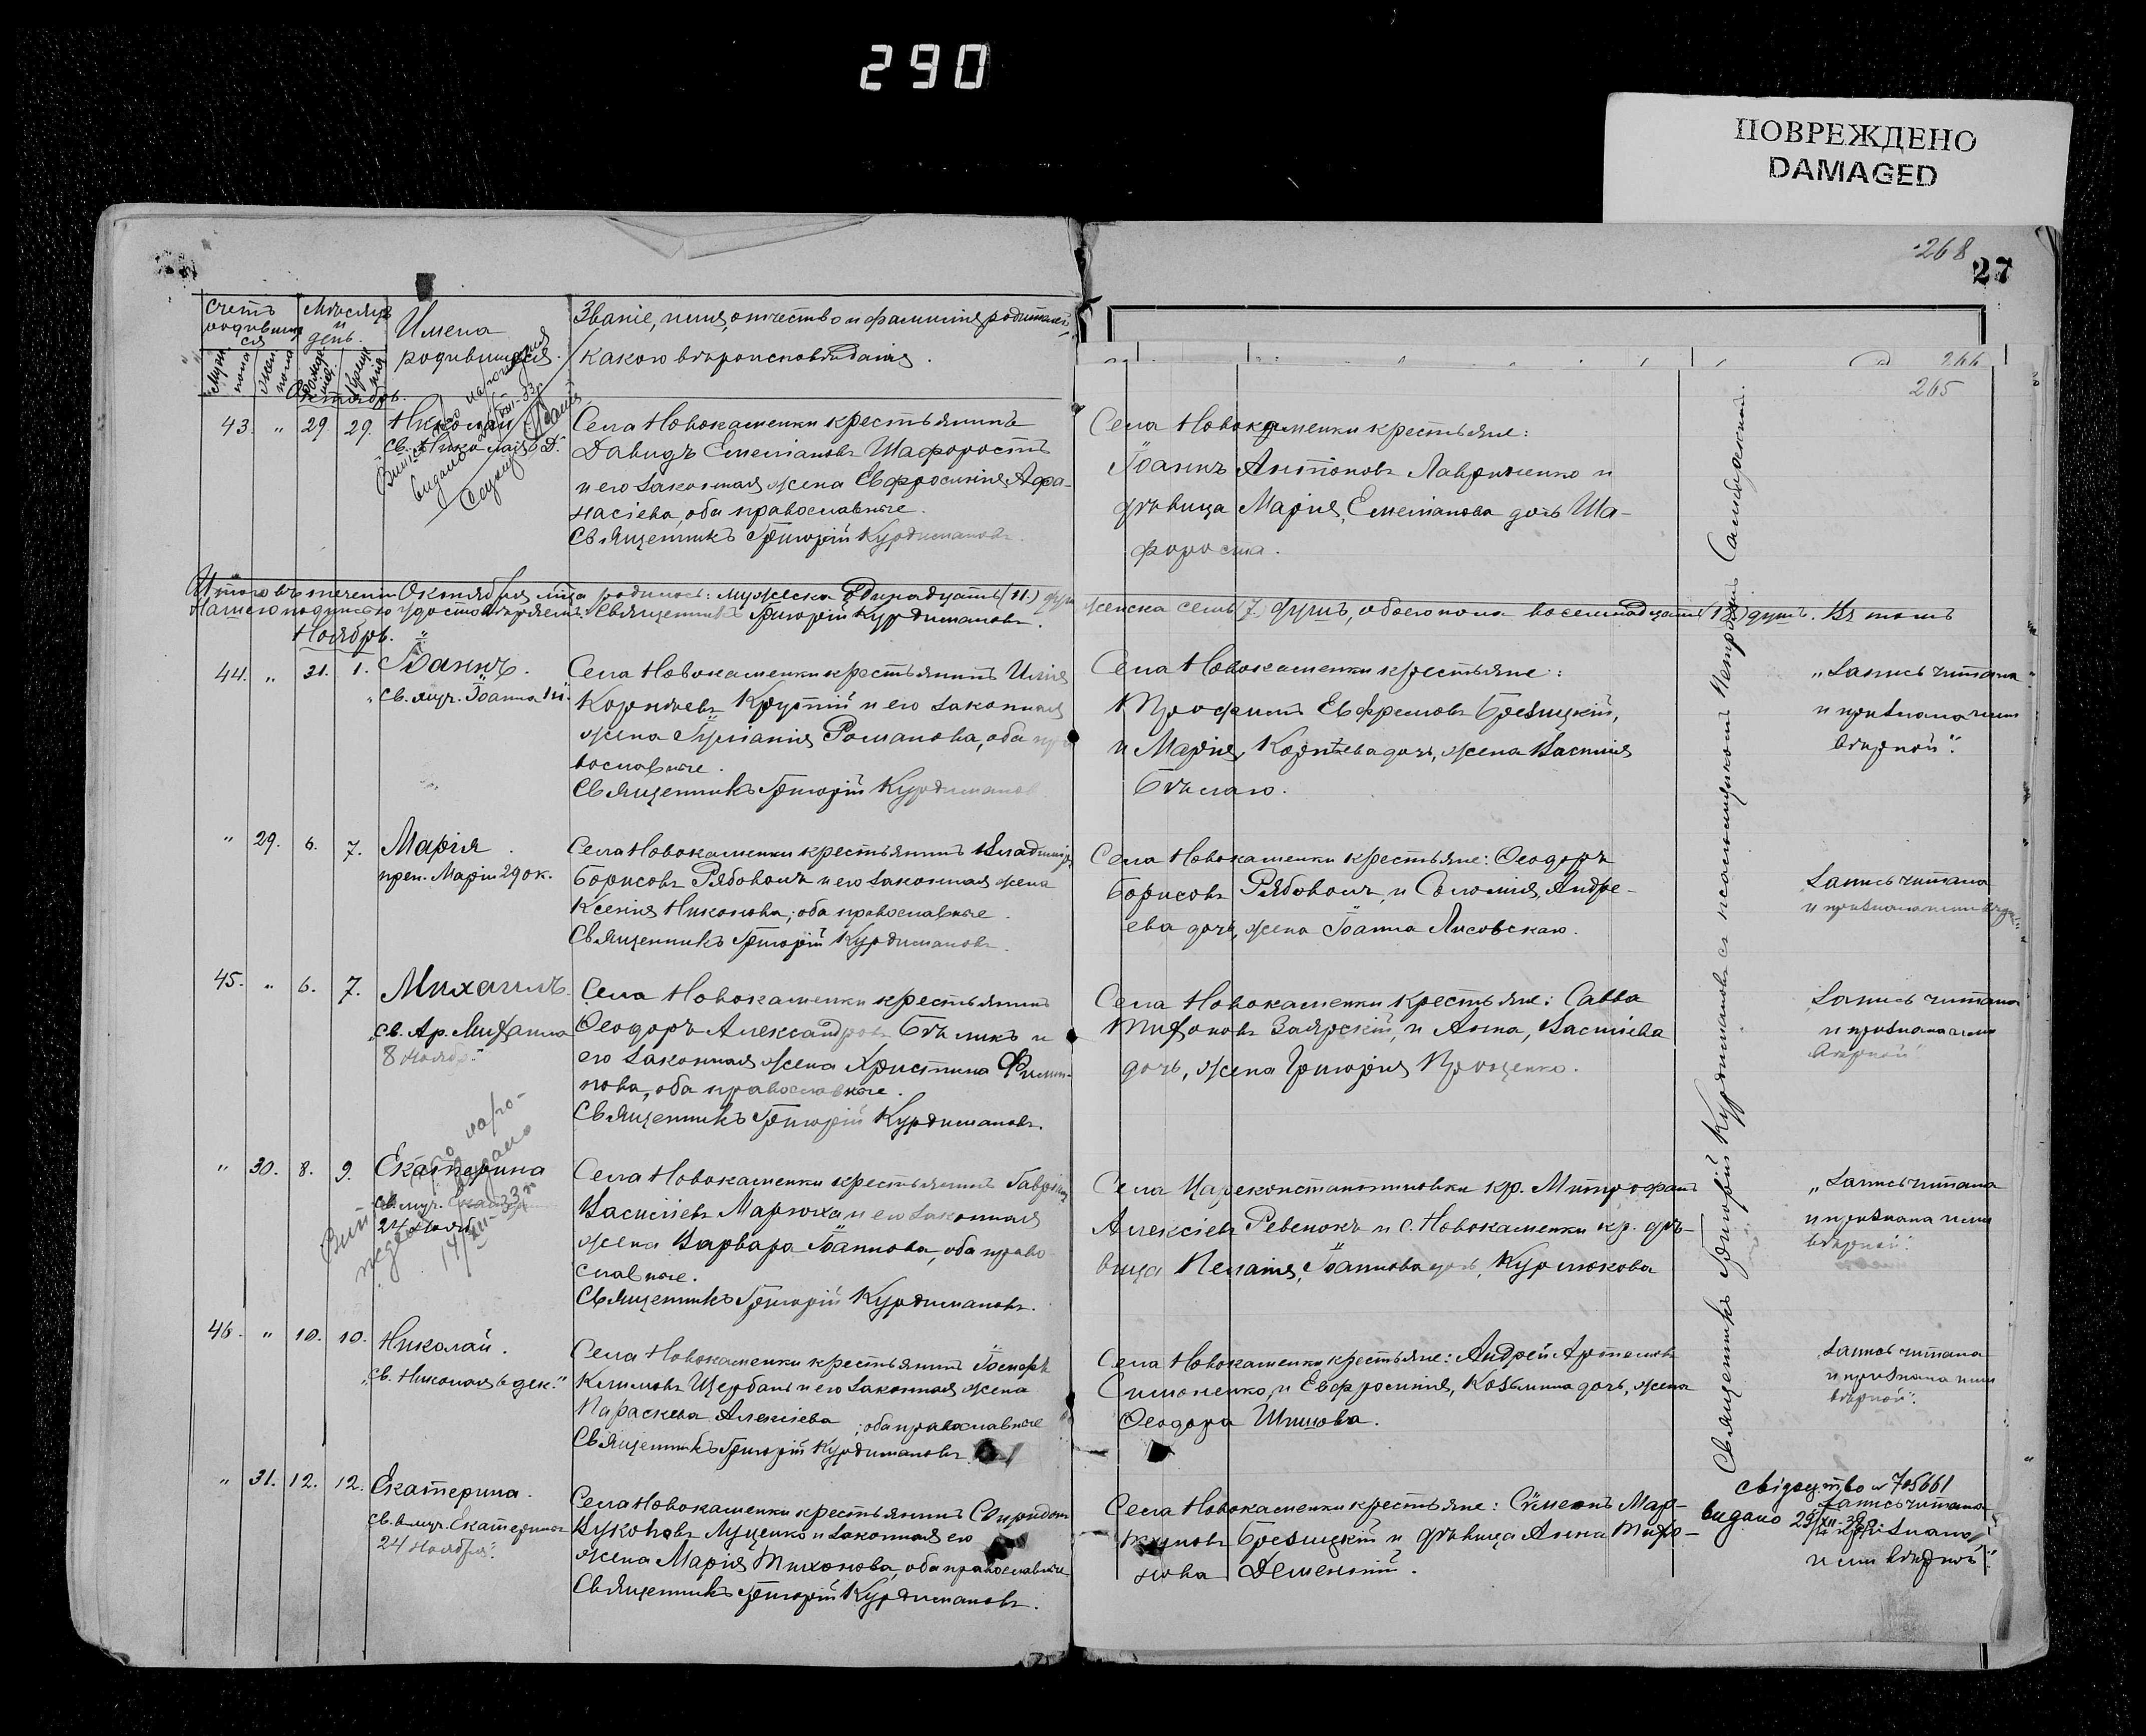 290
ПОВРЕЖДЕНО
DAMAGED
268
27
Счетъ родившихся
Мѣсяцъ и день.
Имена родившихся.
Званіе, имя, отчество и фамилія родителей,
какого вѣроисповѣданія.
266
265
Октябрь.
43. " 29. 29. Николай
Св. Николая 6 Д.
Села Новокаменки крестьянинъ
Давидъ Емеліановъ Шафоростъ
и его законная жена Евфросинія Афа-
насіева, оба православные.
Священникъ Григорій Курдимановъ.
Села Новокаменки крестьяне:
Іоаннъ Антоновъ Лавриненко и
дѣвица Марія, Емеліанова дочь Ша-
фороста.
Итого въ теченіи Октября м-ца родилось: мужеска одинадцать (11) душ женска семь (7) душъ, обоего пола восемнадцать (18) душъ. Въ томъ
Нашею подписью удостовѣряемъ: Священникъ Григорій Курдимановъ.
Ноябрь.
44. " 31. 1. Іоаннъ.
"Св. муч. Іоанна
Села Новокаменки крестьянинъ Илія
Корнѣевъ Крупній и его законная
жена Іуліанія Романова, оба пра
вославные.
Священникъ Григорій Курдиманов
Села Новокаменки крестьяне:
Трофимъ Евфремовъ Брезицкій,
и Марія, Корнѣева дочь, жена Василія
Бѣлаго.
"Запись читана
и признана нами
вѣрной".
" 29. 6. 7. Марія.
преп. Маріи 29 ок.
Села Новокаменки крестьянинъ Владимір
Борисовъ Рябоволъ и его законная жена
Ксенія Никонова, оба православные.
Священникъ Григорій Курдимановъ.
Села Новокаменки крестьяне: Ѳеодоръ
Борисовъ Рябоволъ, и Соломія, Андре-
ева дочь, жена Іоанна Лисовскаго.
Запись читана
и признана нами
45. " 6. 7. Михаилъ
"Св. Ар. Михаила
8 Ноябр."
Села Новокаменки крестьянинъ
Ѳеодоръ Александровъ Бѣликъ и
его законная жена Христина Филип-
пова, оба православные.
Священникъ Григорій Курдимановъ.
Села Новокаменки крестьяне: Савва
Тихоновъ Заярскій, и Анна, Василіева
дочь, жена Григорія Проценко.
Запись читана
и признана нами
вѣрной"
" 30. 8. 9. Екатерина
Св. муч.
24 Нояб
14/XII-33
Села Новокаменки крестьянинъ Гавріилъ
Василіевъ Марюха и его законная
жена Варвара Іоаннова, оба право-
славные.
Священникъ Григорій Курдимановъ.
Села Цареконстантиновки кр. Митрофанъ
Алексіевъ Ревенокъ и с. Новокаменки кр. дѣ-
вица Пелагія, Іоаннова дочь, Курлюкова
"Запись читана
и признана нами
вѣрной".
46. " 10. 10. Николай.
"Св. Николая 6 дек."
Села Новокаменки крестьянинъ Іосифъ
Климовъ Щербань и его законная жена
Параскева Алексіева; оба православные
Священникъ Григорій Курдимановъ.
Села Новокаменки крестьяне: Андрей Артемовъ
Симоненко, и Евфросинія, Козьмина дочь, жена
Ѳеодора Шишова.
Запись читана
и признана нами
вѣрной".
" 31. 12. 12. Екатерина.
Св. в-муч. Екатерины
24 Ноября".
Села Новокаменки крестьянинъ Спиридонъ
Луценко и законная его
жена Марія Тихонова, оба православные
Священникъ Григорій Курдимановъ.
Села Новокаменки крестьяне: Сѵмеонъ Мар-
Брезицкій и дѣвица Анна Тихо-
нова Деменкій.
свідоцтво № 705661
видано 29/XII-39
Запись читана
и признана
нами вѣрной".
Священникъ Григорій Курдимановъ съ псаломщикомъ Петромъ Самборскимъ.